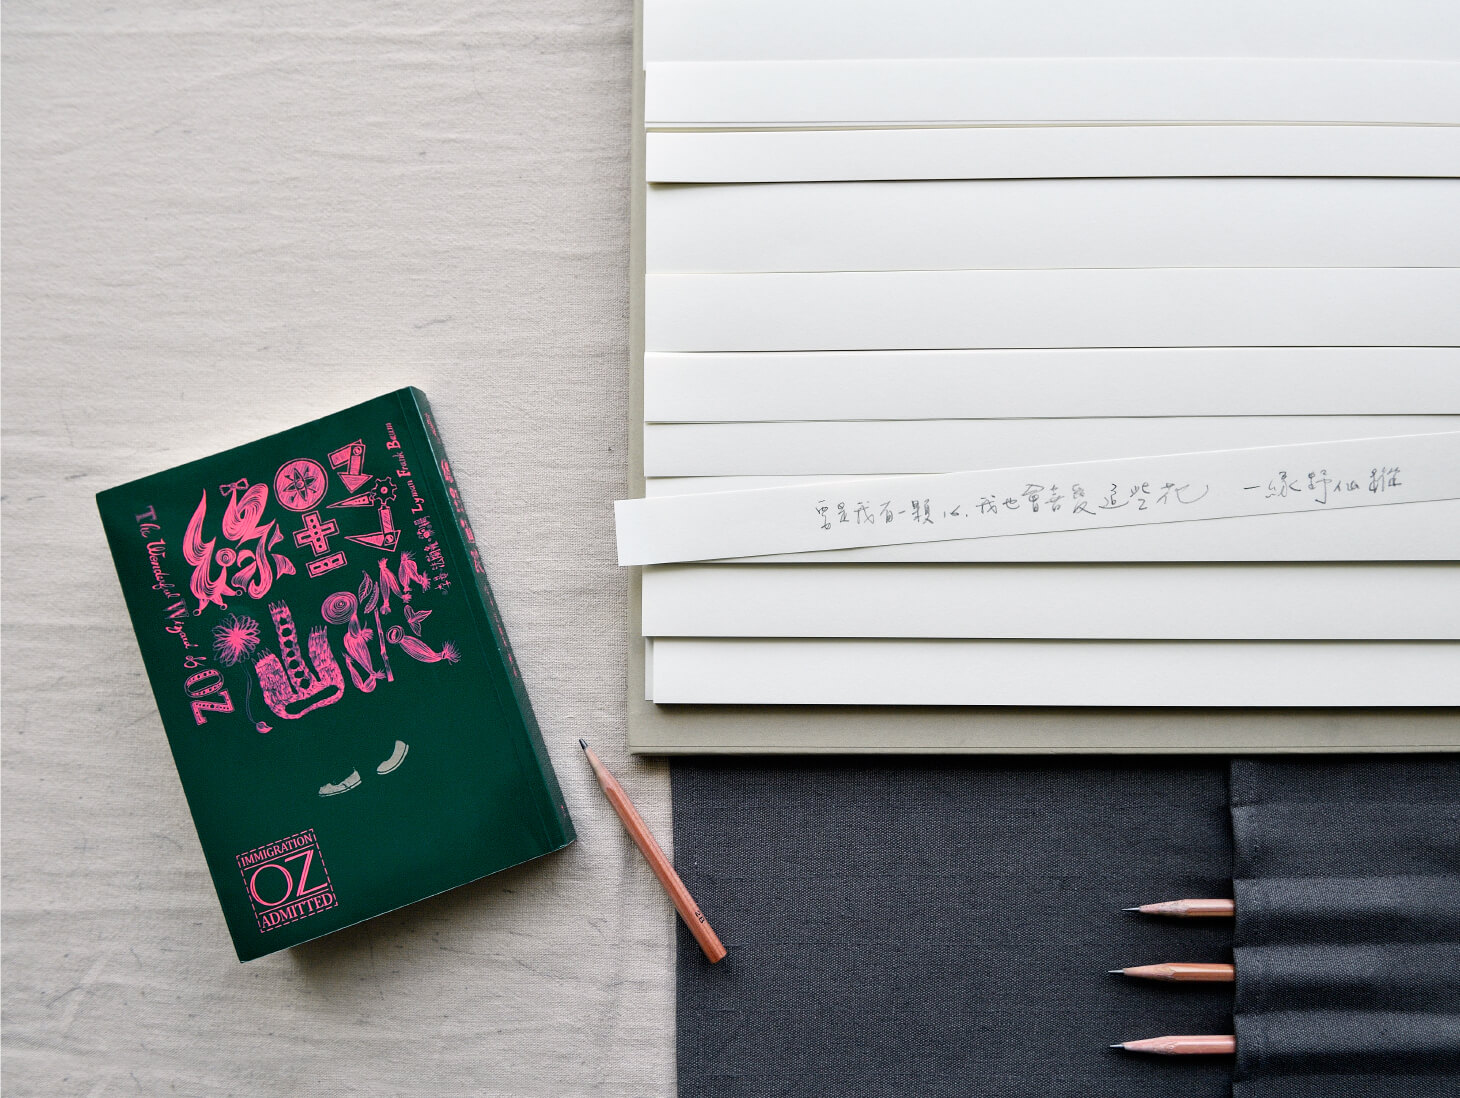 The Wonderful Wizard of OZ
綠野
仙蹤
Lyman Frank Baum
IMMIGRATION
OZ
ADMITTED
要是我有一顆心,我也會喜愛這些花 —綠野仙蹤
2B